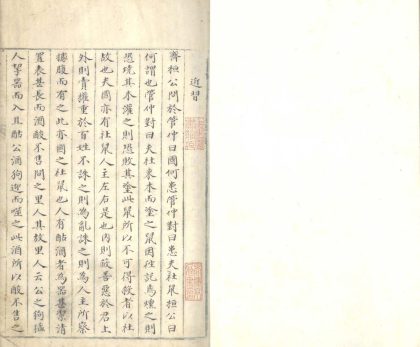 近習
齊桓公問於管仲曰國何患管仲對曰患夫社鼠桓公曰
何謂也管仲對曰夫社束木而塗之鼠因往託焉燻之則
恐燒其木灌之則恐敗其塗此鼠所以不可得殺者以社
故也夫國亦有社鼠人主左右是也内則蔽善惡於君上
外則賣權重於百姓不誅之則為亂誅之則為人主所察
據腹而有之此亦國之社鼠也人有酤酒者為器甚潔清
置表甚長而酒酸不售問之里人其故里人云公之狗猛
人挈器而入且酤公酒狗迎而噬之此酒所以酸不售之